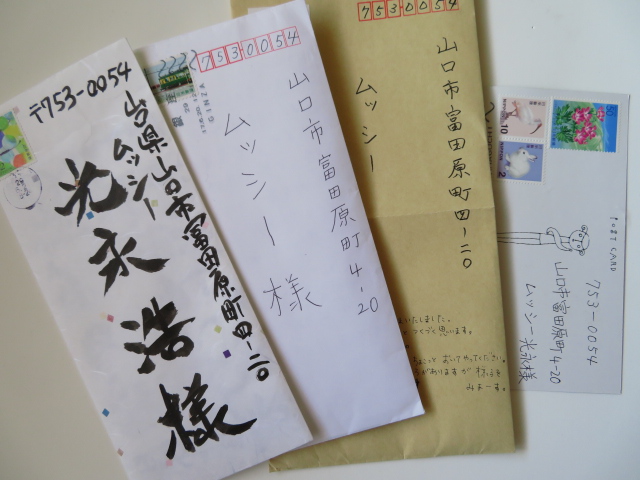 〒753-0054
山口県山口市富田原町四-二〇
ムッシー
光永浩様
7530054
山口市富田原町4-20
ムッシー様
7530054
山口市富田原町四-二〇
ムッシー
いたしました。
つくづく思います。
ちょっと おいてやってください。
がありますが
みまーす。
50
10
NIPPON
2
NIPPON
POST CARD
753-0054
山口市富田原町4-20
ムッシー光永様